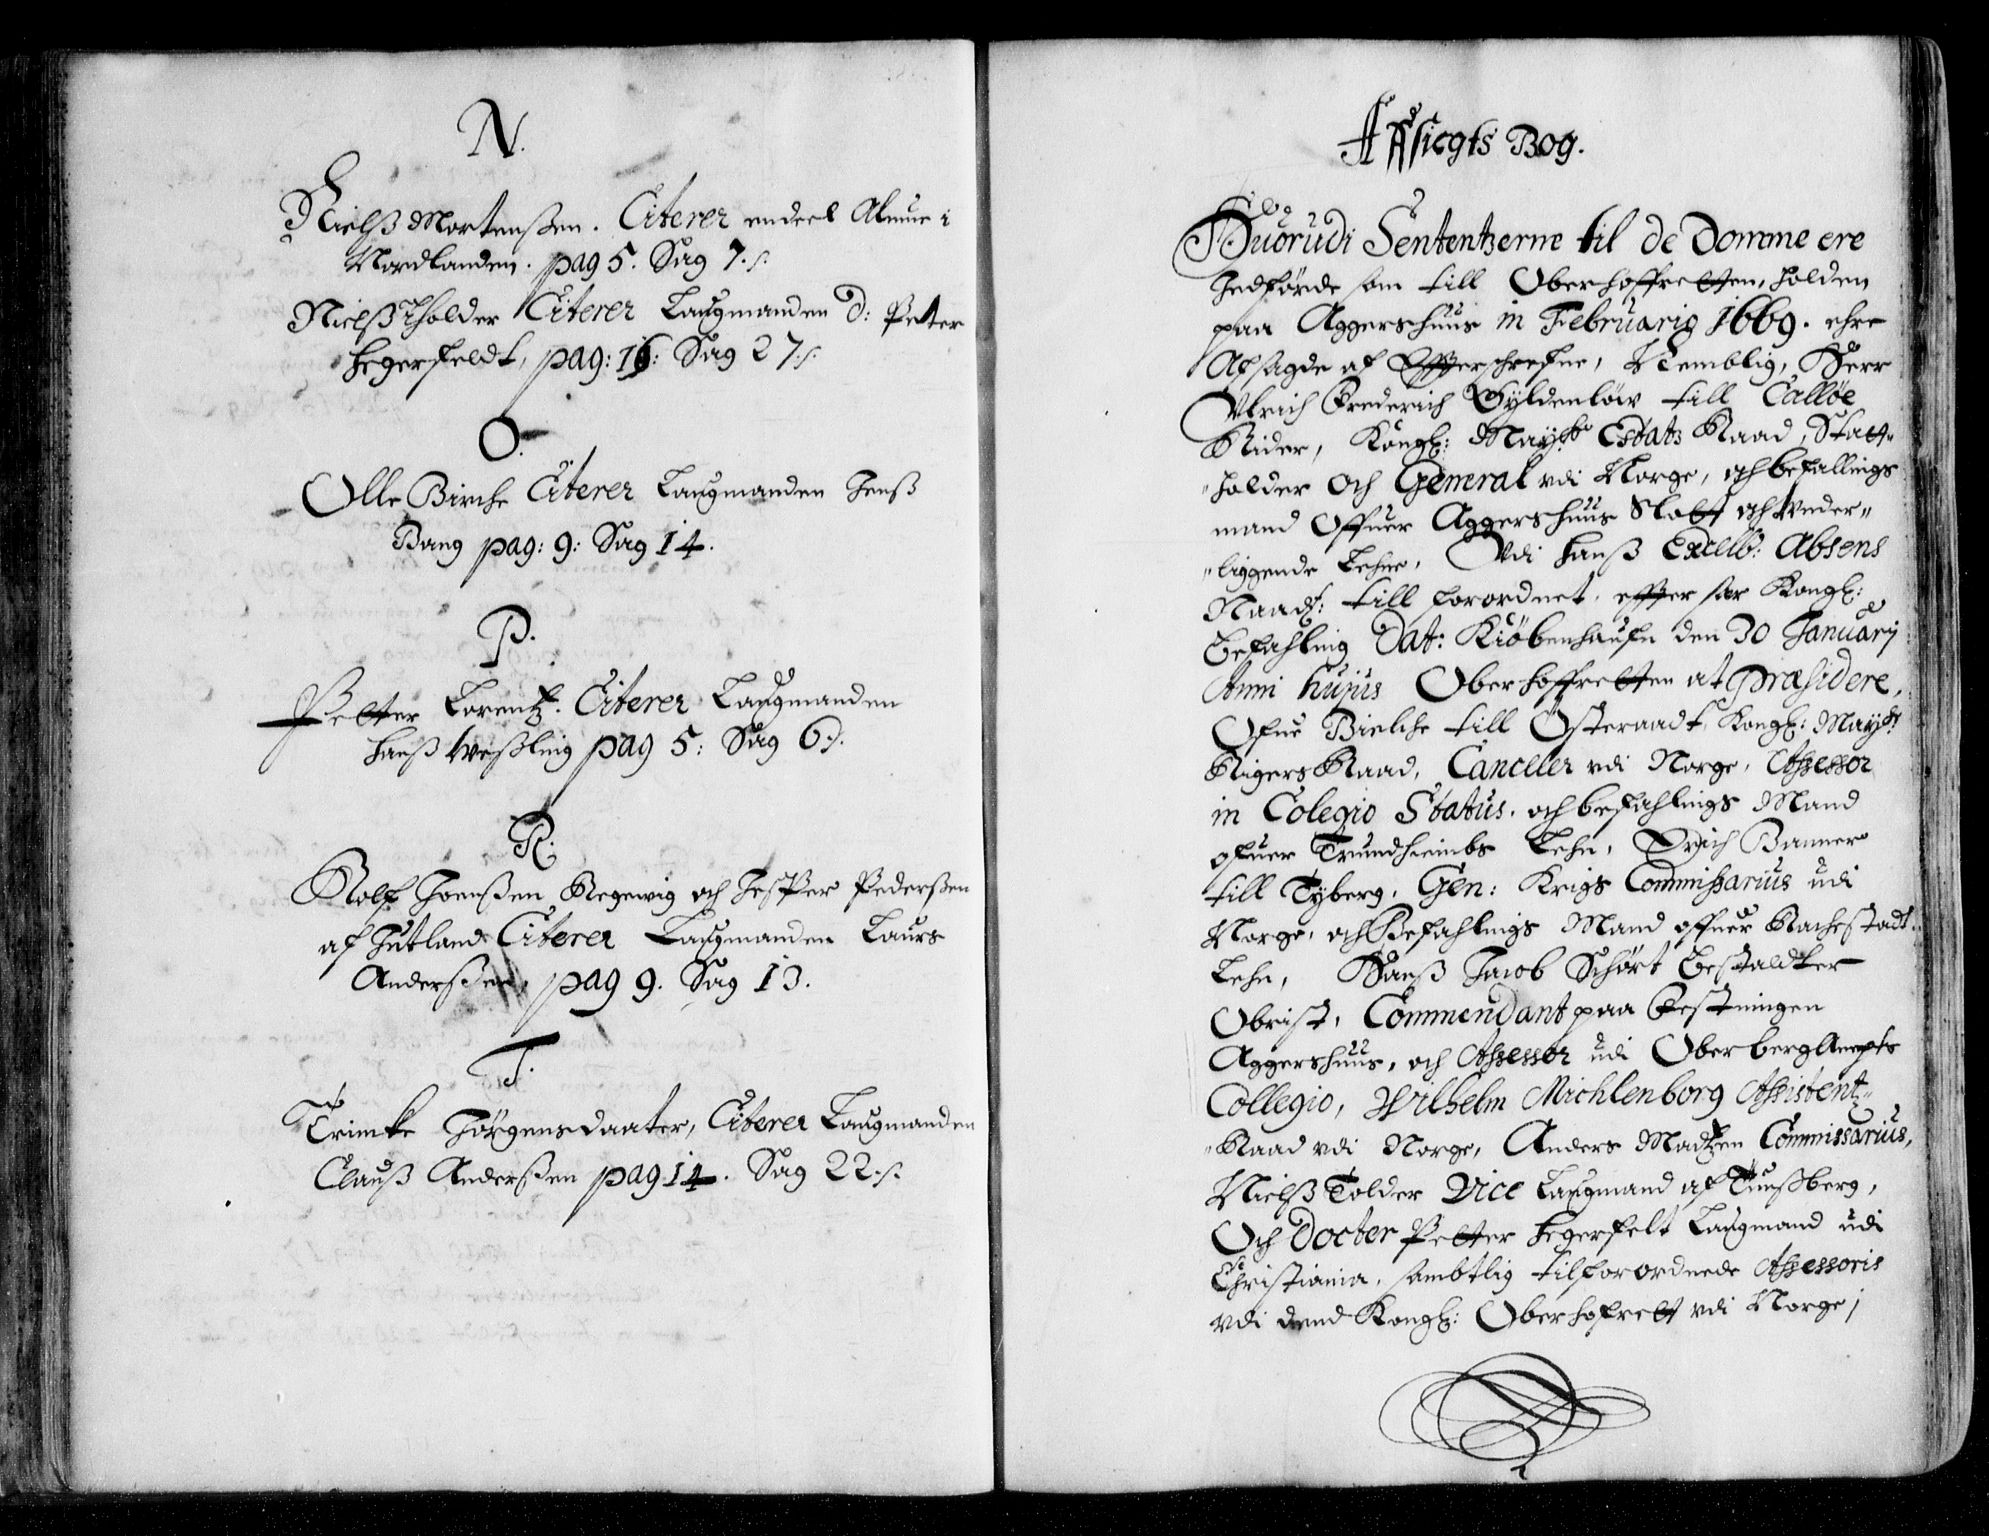 N.
Nielß Mortenßen. Citerer endeel Almue i
Nordlanden. pag 5. Sag 7./.
Nielß Tholder Citerer Laugmanden D: Peter
Hegerfeldt, pag: 16: Sag 27:/:
O.
Olle Birche Citerer Laugmanden Jenß
Bang pag: 9: Sag 14.
P.
Petter Lorentz. Citerer Laugmanden
Hanß Weßling pag 5: Sag 6:/.
R.
Rolf Joenßen Regewig och Jesper Pederßen
af Jutland Citerer Laugmanden Laurs
Anderßen, pag 9. Sag 13.
T.
Trincke Jörgensdaater, Citerer Laugmanden
Clauß Anderßen pag 14. Sag 22:/.
Affsicgts Bog.
Huorudi Sententzerne til de Domme ere
Indförde som till Oberhoffretten, holden
paa Aggershuus in Februario 1669. ehre
Afsagde af Effterschrefne, Nemblig, Herr
Vlrich Frederich Gyldenlöw till Calløe
Rider, Kongl: Mayts Estats Raad, Statt-
"holder Och General vdi Norge, och befallings
mand Offuer Aggershuus Slott och Vnder"
"liggende Lehne, Vdi Hanß Excell: Absens
Naadl: till forordnet, effter sær Kongl:
Befahling Dat: Kiöbenhaufn den 30 Januarij
Anni hujus Oberhoffretten at Præsidere,
Ofue Bielche till Österaadt, Kongl: Mayts
Rigers Raad, Canceler vdi Norge, Assessor
in Colegio Status, och befahlings Mand
ofuer Trundhiembs Lehn, Erich Banner
till Tyberg, Gen: Krigs Commissarius udi
Norge, och Befahlings Mand offuer Rachestadt
Lehn, Hanß Jacob Schört Bestaldter
Obrist, Commendant paa Festningen
Aggershuus, och Assessor udi Oberbergampts
Collegio, Wilhelm Michlenborg Assistentz"
"Raad vdi Norge, Anders Madtzen Commissarius,
Nielß Tolder Vice Laugmand af Tunßberg,
Och Docter Petter Hegerfelt Laugmand udi
Christiania, sambtlig tilforordnede Assessoris
vdi dend Kongl: Oberhofrett vdi Norge /